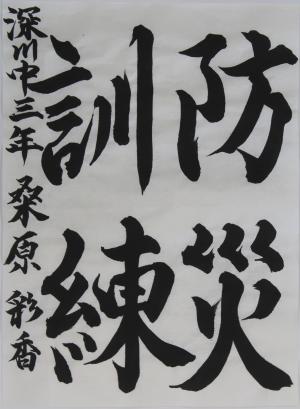 防災
訓練
深川中三年 桑原 彩香